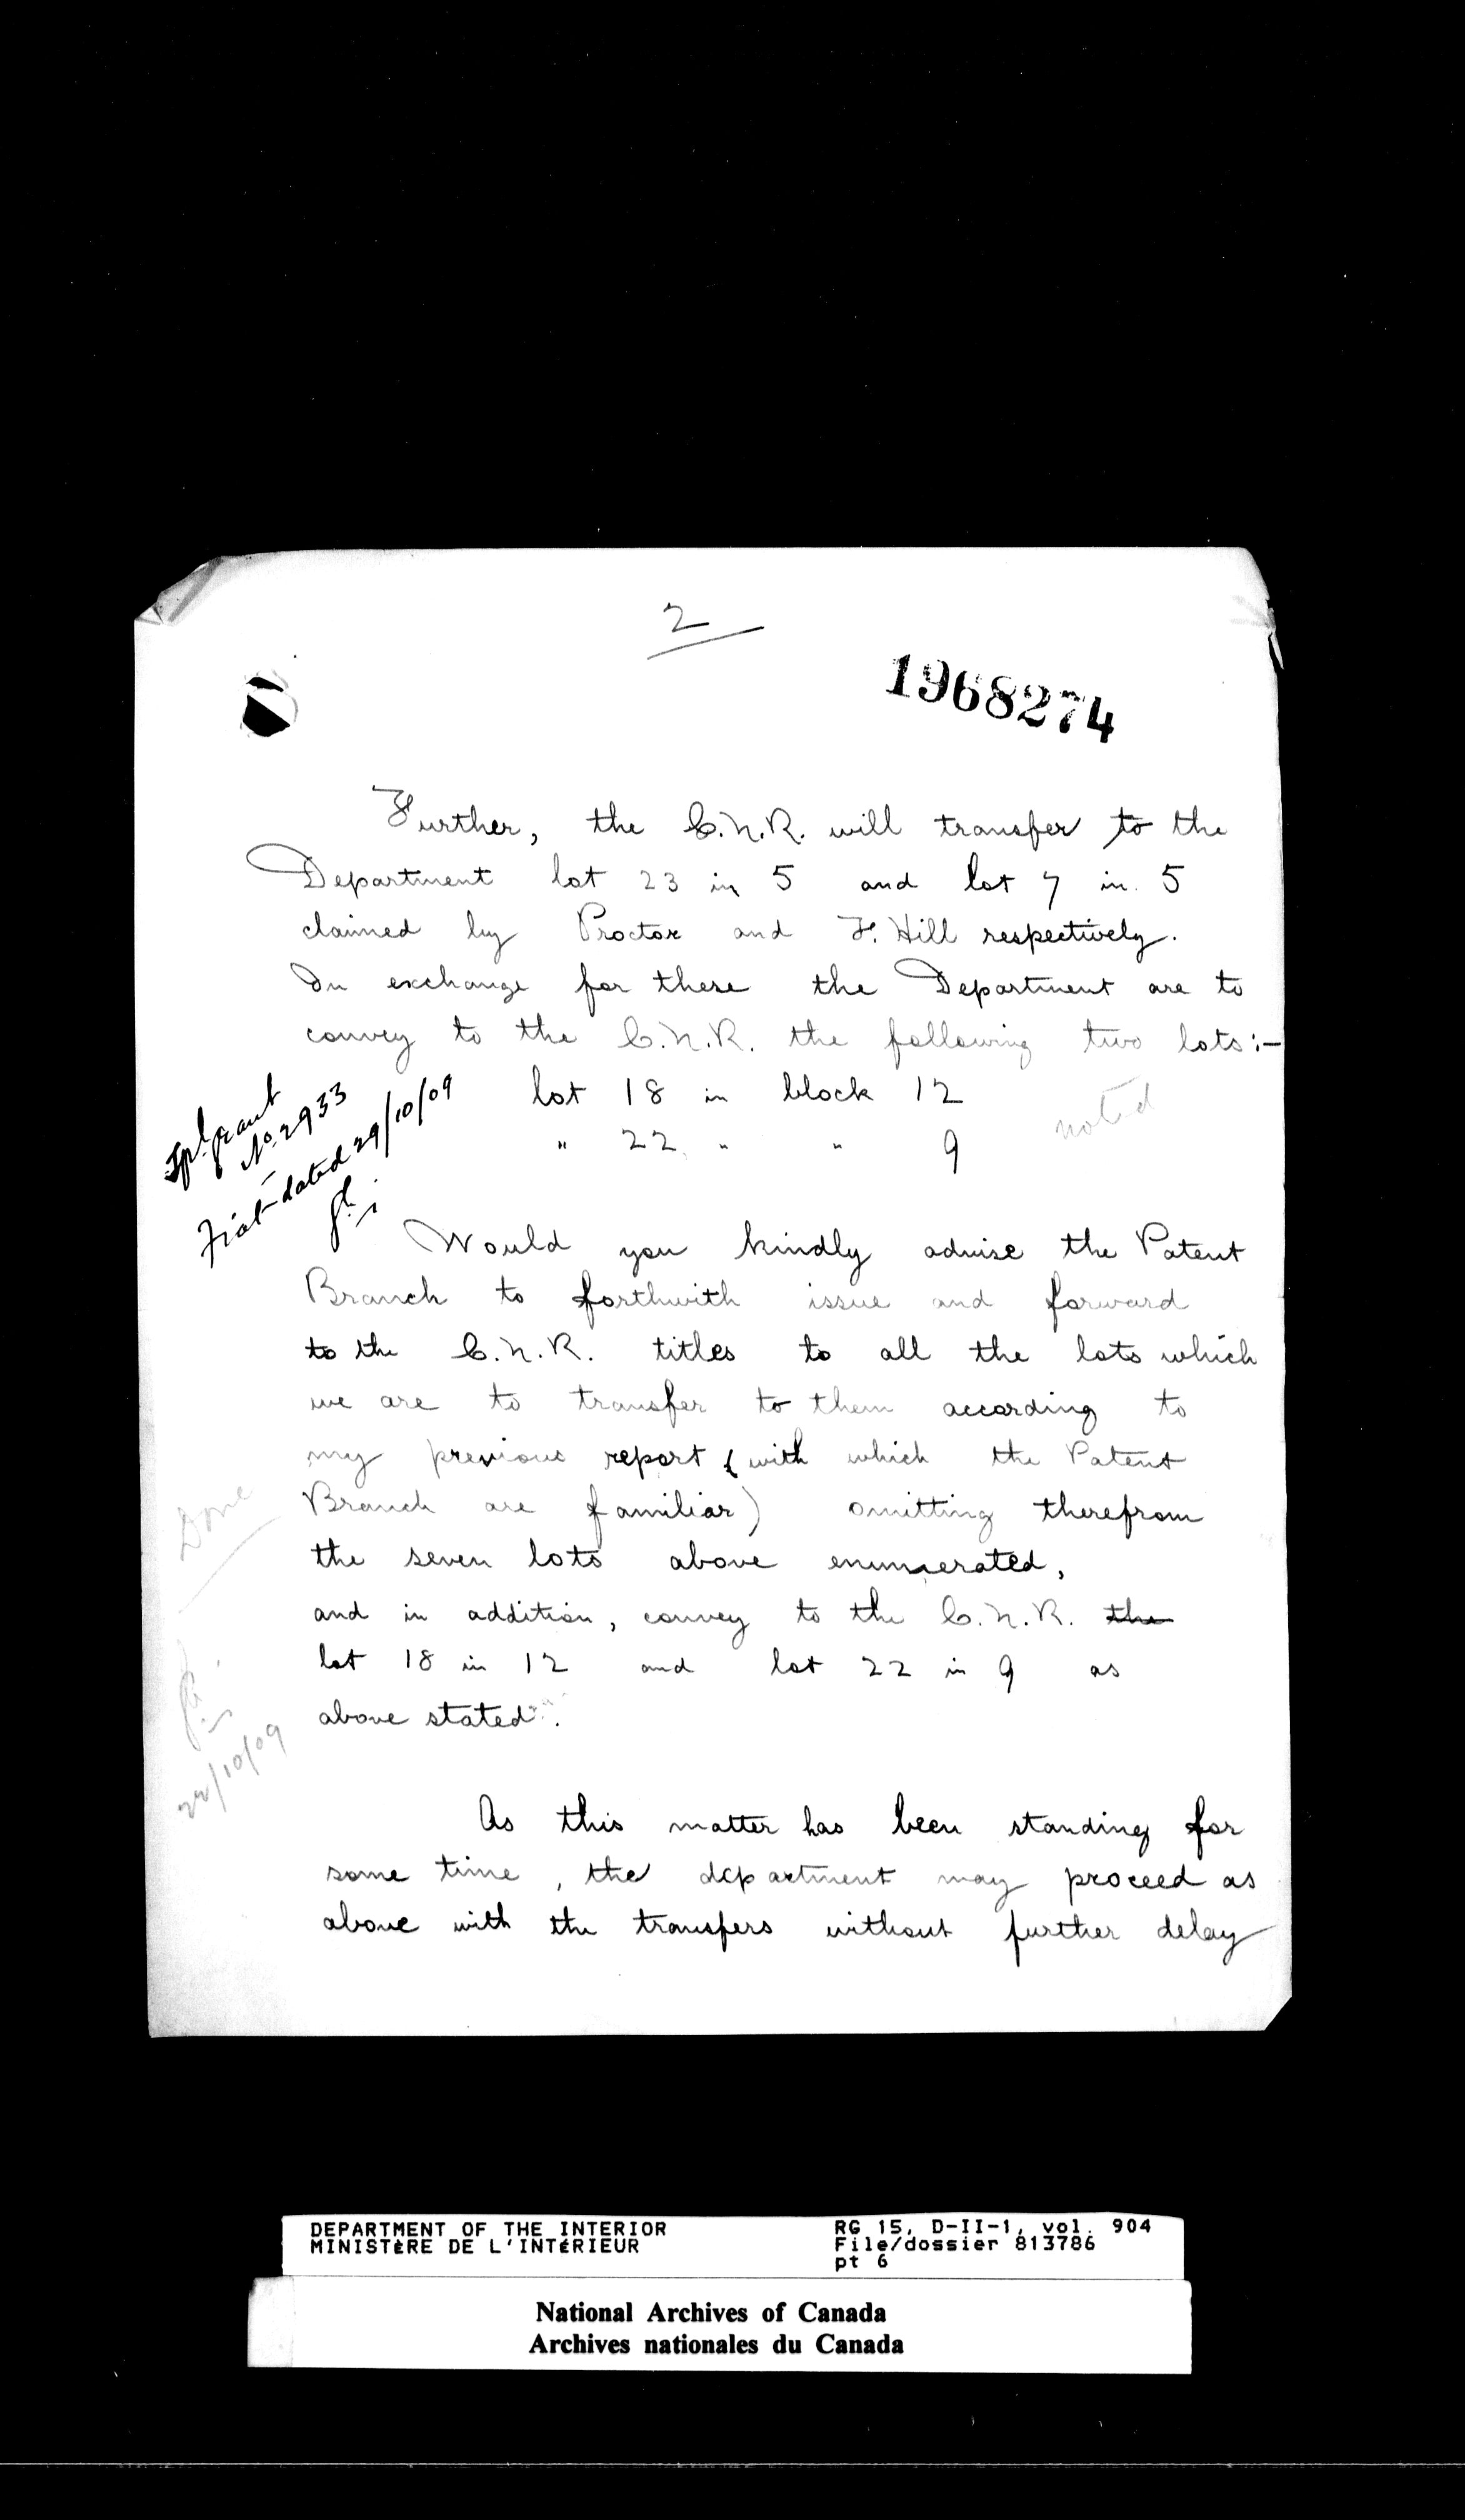 2
1968274
Further, the C.N.R. will transfer to the
Department lot 23 in 5 and lot 7 in 5
claimed by Proctor and F. Hill respectively.
In exchange for these the Department are to
convey to the C.N.R. the following two lots :-
lot 18 in block 12
" 22 " " 9
noted
Spl. grant
No. 2933
Fiat dated 29/10/09
Would you kindly advise the Patent
Branch to forthwith issue and forward
to the C.N.R. titles to all the lots which
we are to transfer to them according to
my previous report (with which the Patent
Branch are familiar) omitting therefrom
the seven lots above enumerated,
and in addition, convey to the C.N.R. the
lot 18 in 12 and lot 22 in 9 as
above stated.
Done
/10/09
As this matter has been standing for
some time, the department may proceed as
above with the transfers without further delay
DEPARTMENT OF THE INTERIOR
MINISTÈRE DE L'INTÉRIEUR
RG 15, D-II-1, vol. 904
File/dossier 813786
pt 6
National Archives of Canada
Archives nationales du Canada